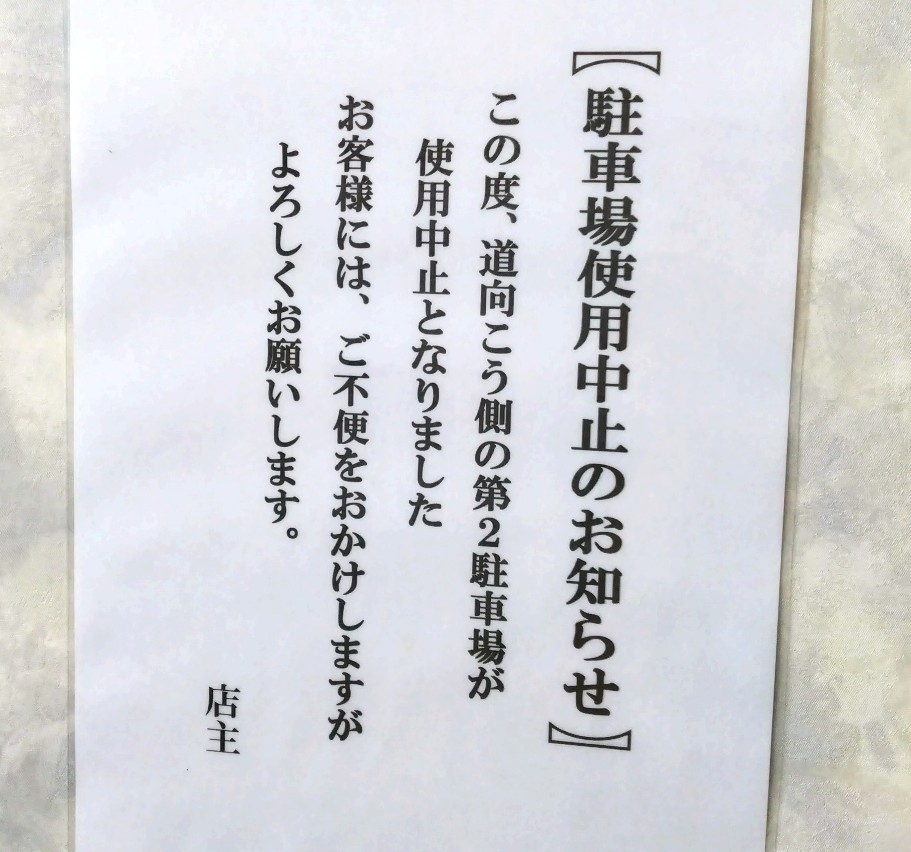 【駐車場使用中止のお知らせ】
この度、道向こう側の第2駐車場が
使用中止となりました
お客様には、ご不便をおかけしますが
よろしくお願いします。
店主